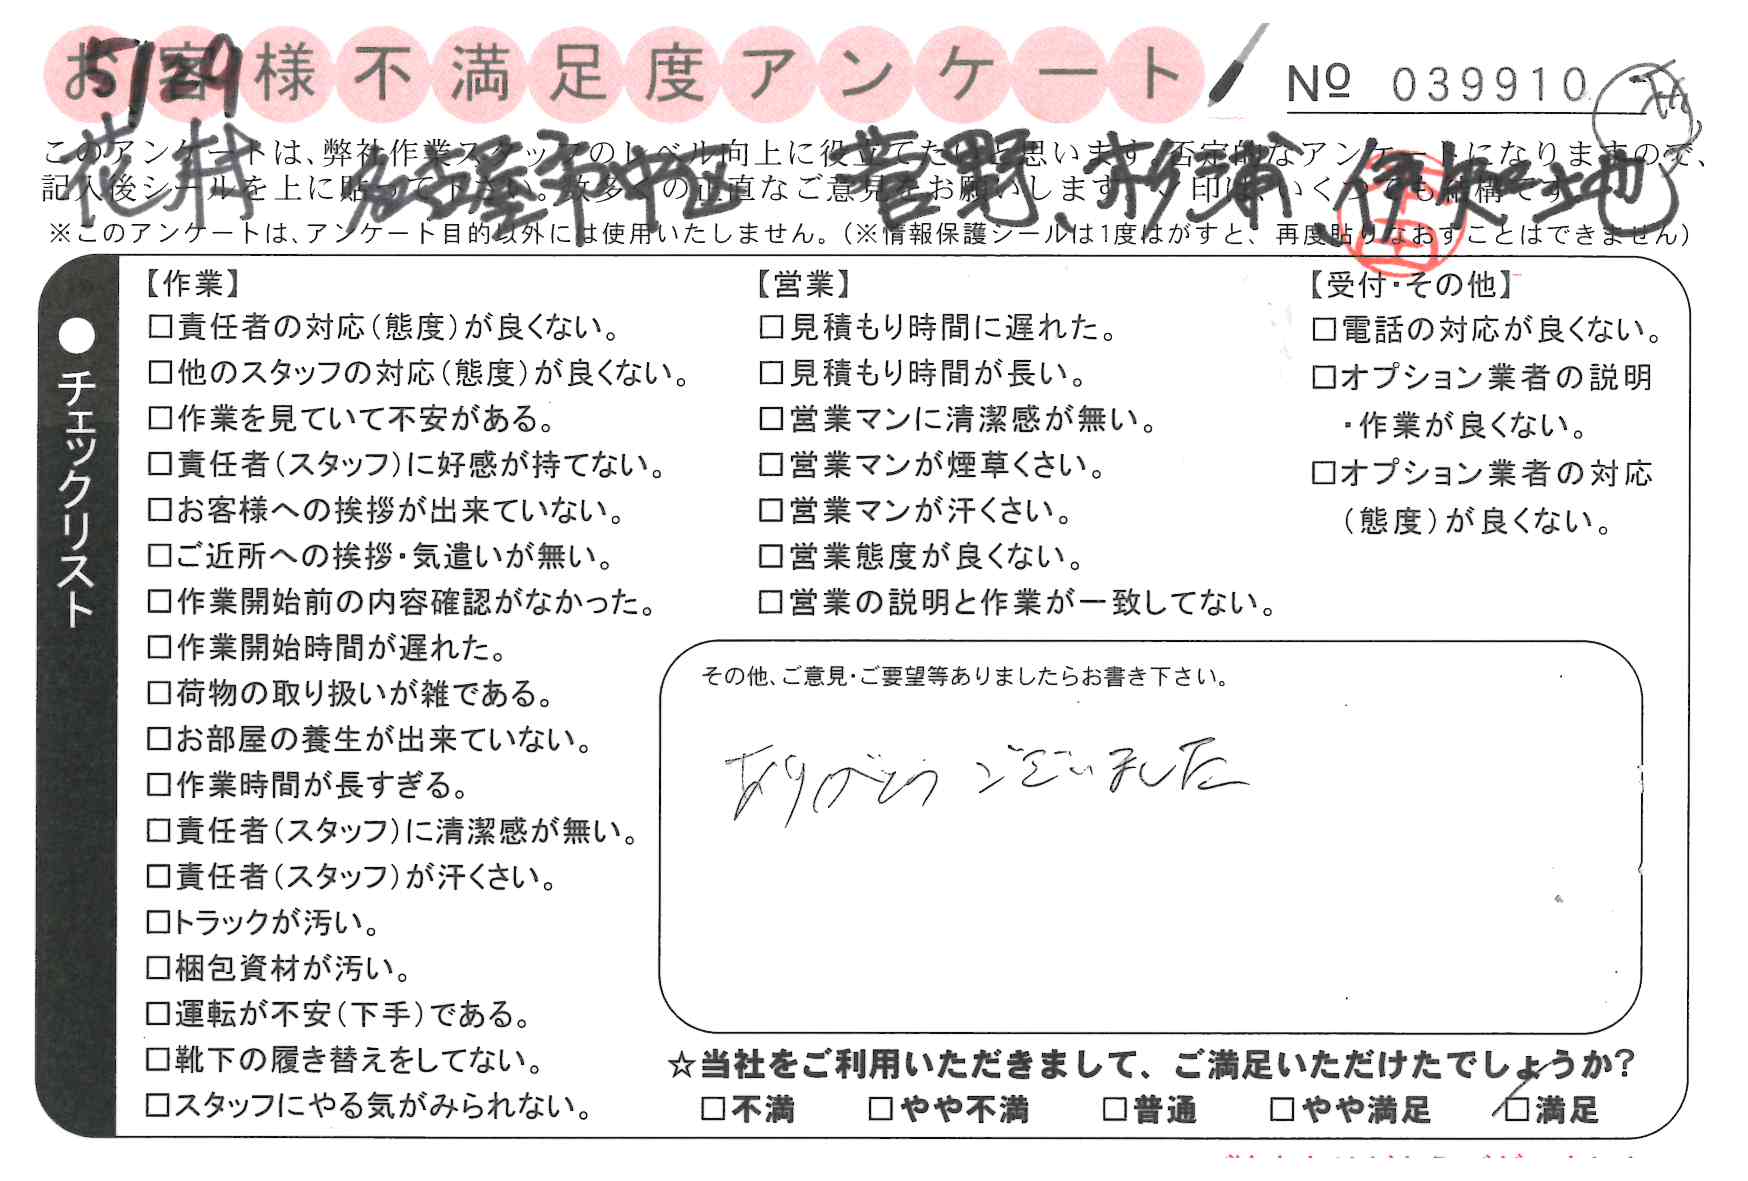 お客様不満足度アンケート
№ 039910
5/29
花村 名古屋市中区 吉野、杉浦、伊加土地
このアンケートは、弊社作業スタッフのレベル向上に役立てたいと思います。否定的なアンケートになりますので、
記入後シールを上に貼って下さい。数多くの正直なご意見をお願いします。✓印は、いくつでも結構です。
※このアンケートは、アンケート目的以外には使用いたしません。（※情報保護シールは1度はがすと、再度貼りなおすことはできません）
●チェックリスト
【作業】
□責任者の対応（態度）が良くない。
□他のスタッフの対応（態度）が良くない。
□作業を見ていて不安がある。
□責任者（スタッフ）に好感が持てない。
□お客様への挨拶が出来ていない。
□ご近所への挨拶・気遣いが無い。
□作業開始前の内容確認がなかった。
□作業開始時間が遅れた。
□荷物の取り扱いが雑である。
□お部屋の養生が出来ていない。
□作業時間が長すぎる。
□責任者（スタッフ）に清潔感が無い。
□責任者（スタッフ）が汗くさい。
□トラックが汚い。
□梱包資材が汚い。
□運転が不安（下手）である。
□靴下の履き替えをしてない。
□スタッフにやる気がみられない。
【営業】
□見積もり時間に遅れた。
□見積もり時間が長い。
□営業マンに清潔感が無い。
□営業マンが煙草くさい。
□営業マンが汗くさい。
□営業態度が良くない。
□営業の説明と作業が一致してない。
【受付・その他】
□電話の対応が良くない。
□オプション業者の説明
・作業が良くない。
□オプション業者の対応
（態度）が良くない。
その他、ご意見・ご要望等ありましたらお書き下さい。
ありがとうございました
☆当社をご利用いただきまして、ご満足いただけたでしょうか？
□不満 □やや不満 □普通 □やや満足 □満足